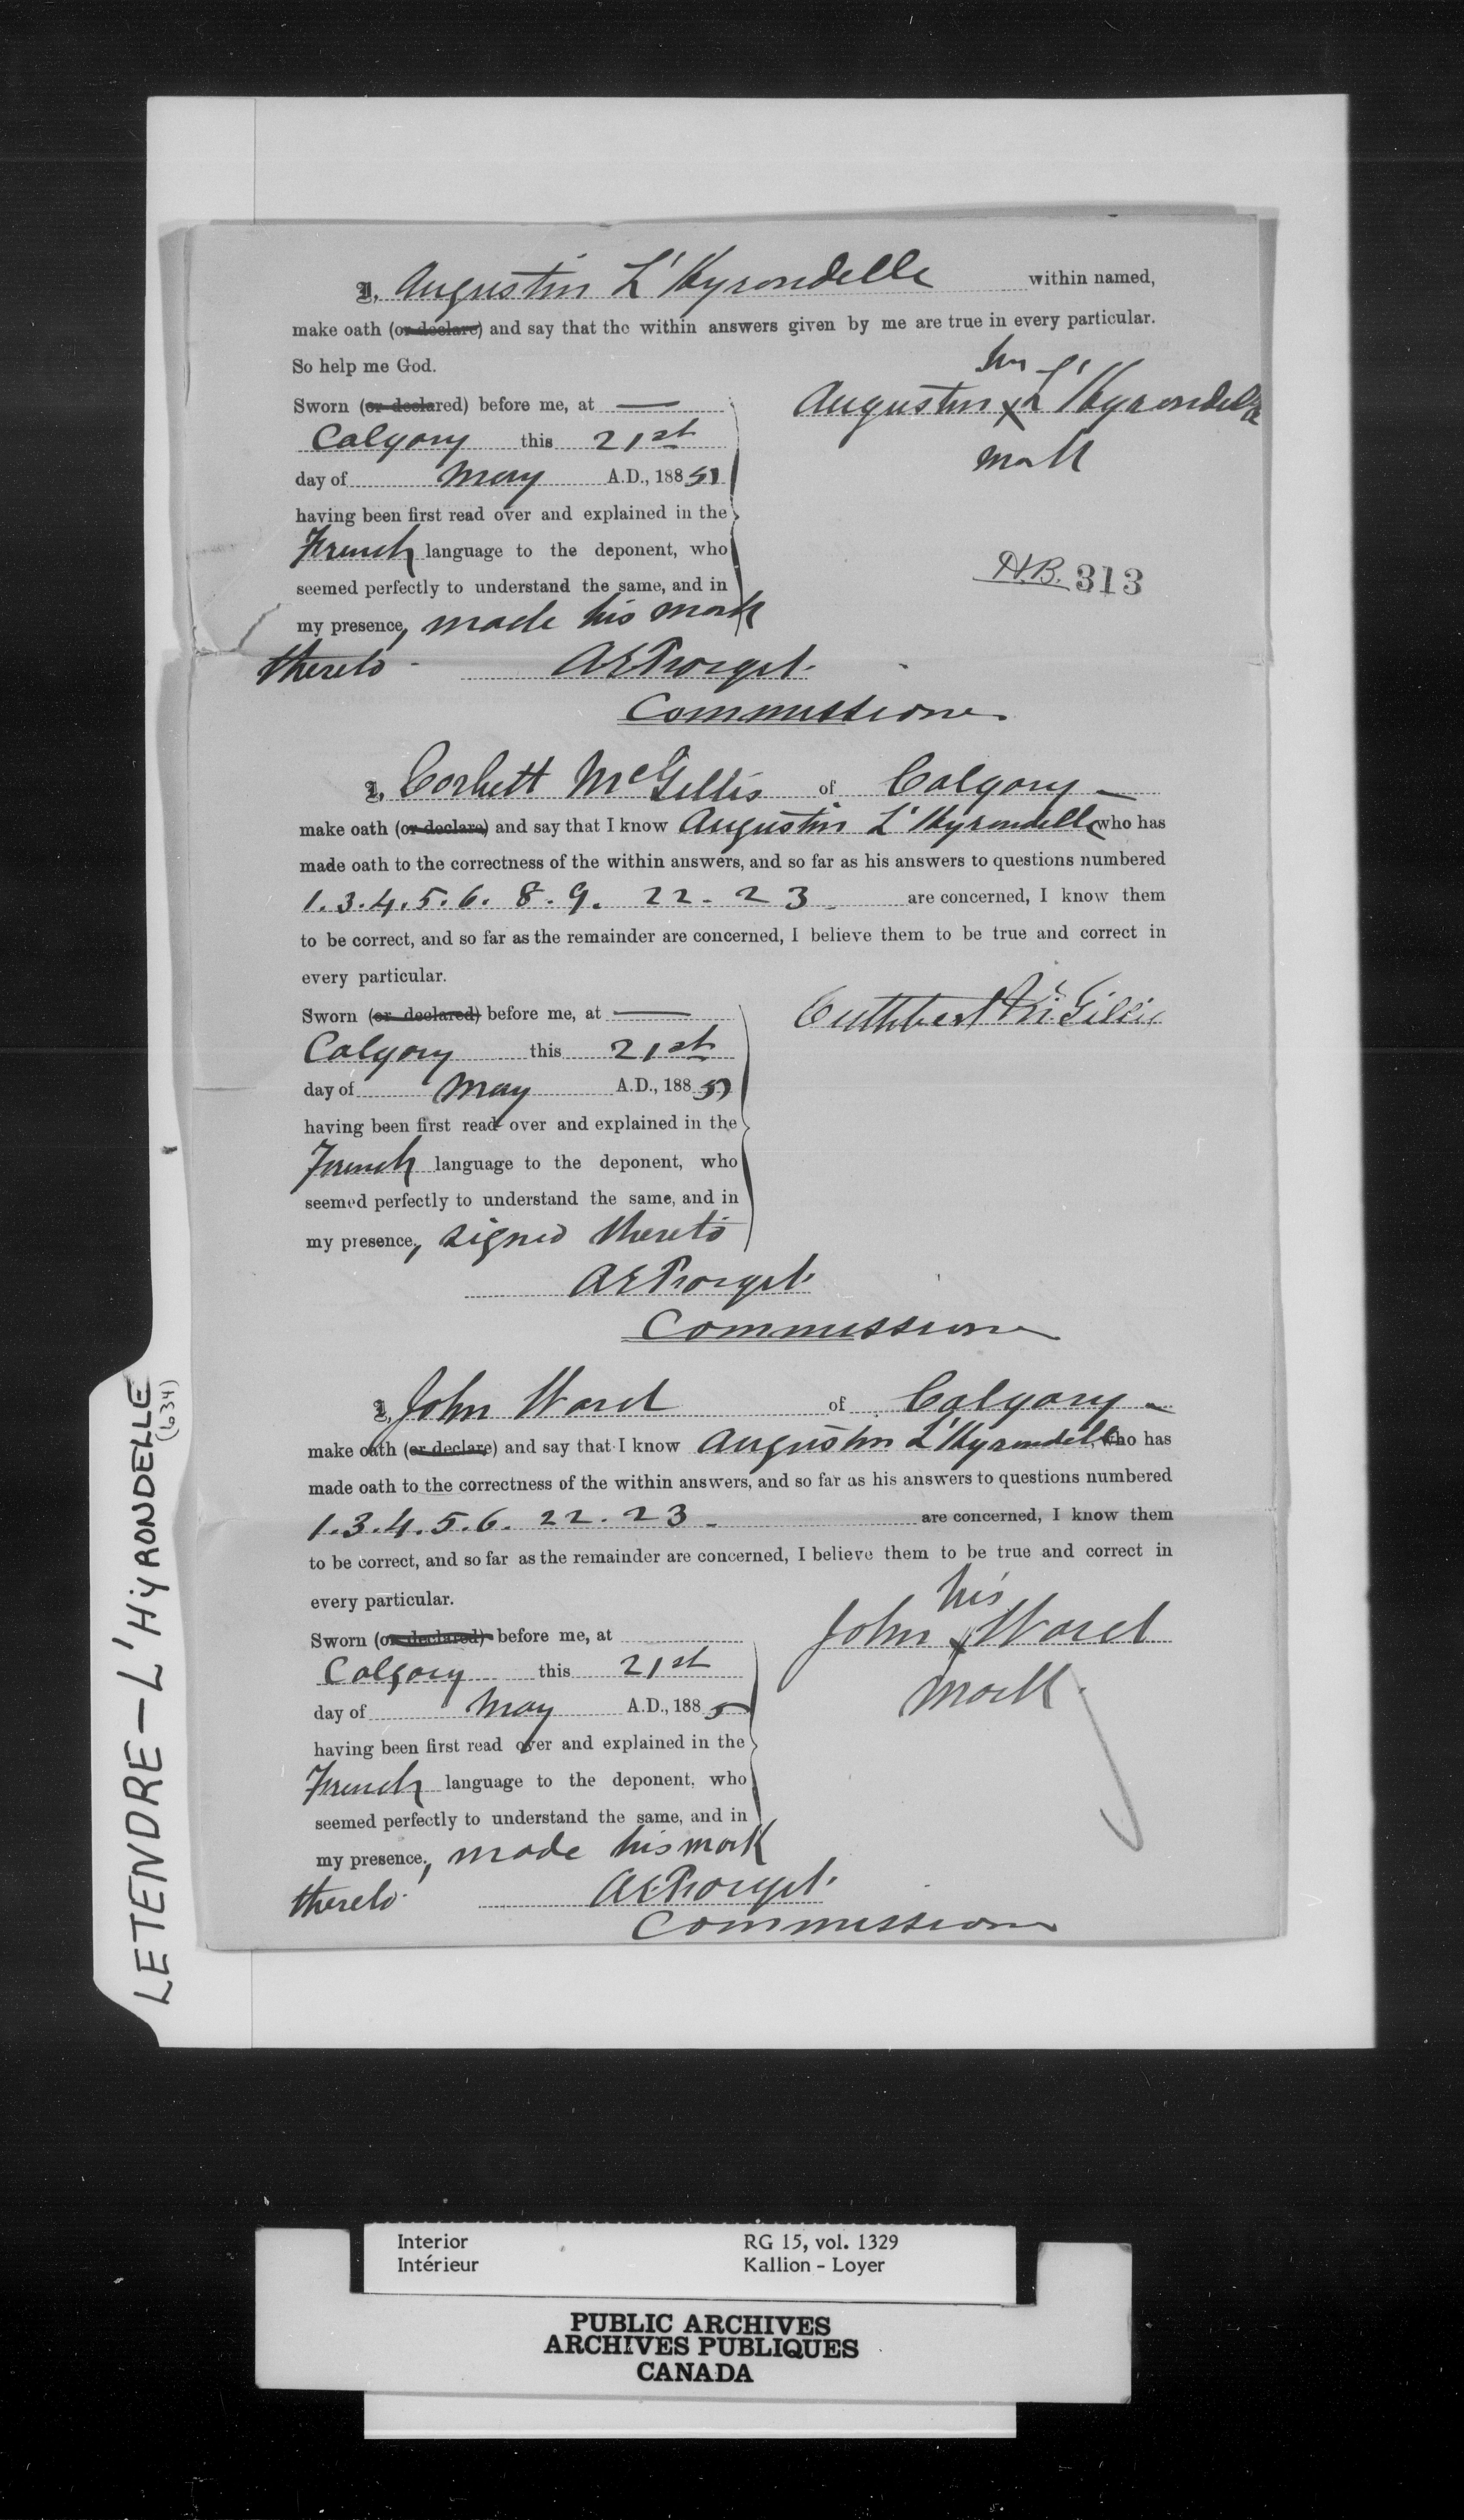 I, Augustin L'Hyrondelle within named,
make oath (or declare) and say that the within answers given by me are true in every particular.
So help me God.
Sworn (or declared) before me, at —
Calgary this 21st
day of May A.D., 1885
having been first read over and explained in the
French language to the deponent, who
seemed perfectly to understand the same, and in
my presence, made his mark
thereto.
his
Augustin X L'Hyrondelle
mark
N.B. 313
AEForget.
Commissioner
I, Corbett McGillis of Calgary —
make oath (or declare) and say that I know Augustin L'Hyrondelle who has
made oath to the correctness of the within answers, and so far as his answers to questions numbered
1. 3. 4. 5. 6. 8. 9. 22. 23 are concerned, I know them
to be correct, and so far as the remainder are concerned, I believe them to be true and correct in
every particular.
Sworn (or declared) before me, at —
Calgary this 21st
day of May A.D., 1885
having been first read over and explained in the
French language to the deponent, who
seemed perfectly to understand the same, and in
my presence, signed thereto
Cuthbert McGillis
AEForget.
Commissioner
I, John Ward of Calgary —
make oath (or declare) and say that I know Augustin L'Hyrondelle who has
made oath to the correctness of the within answers, and so far as his answers to questions numbered
1. 3. 4. 5. 6. 22. 23 are concerned, I know them
to be correct, and so far as the remainder are concerned, I believe them to be true and correct in
every particular.
Sworn (or declared) before me, at
Calgary this 21st
day of May A.D., 1885
having been first read over and explained in the
French language to the deponent, who
seemed perfectly to understand the same, and in
my presence, made his mark
thereto.
his
John X Ward
mark.
AEForget.
Commissioner
LETENDRE — L'HYRONDELLE
(634)
Interior RG 15, vol. 1329
Intérieur Kallion - Loyer
PUBLIC ARCHIVES
ARCHIVES PUBLIQUES
CANADA